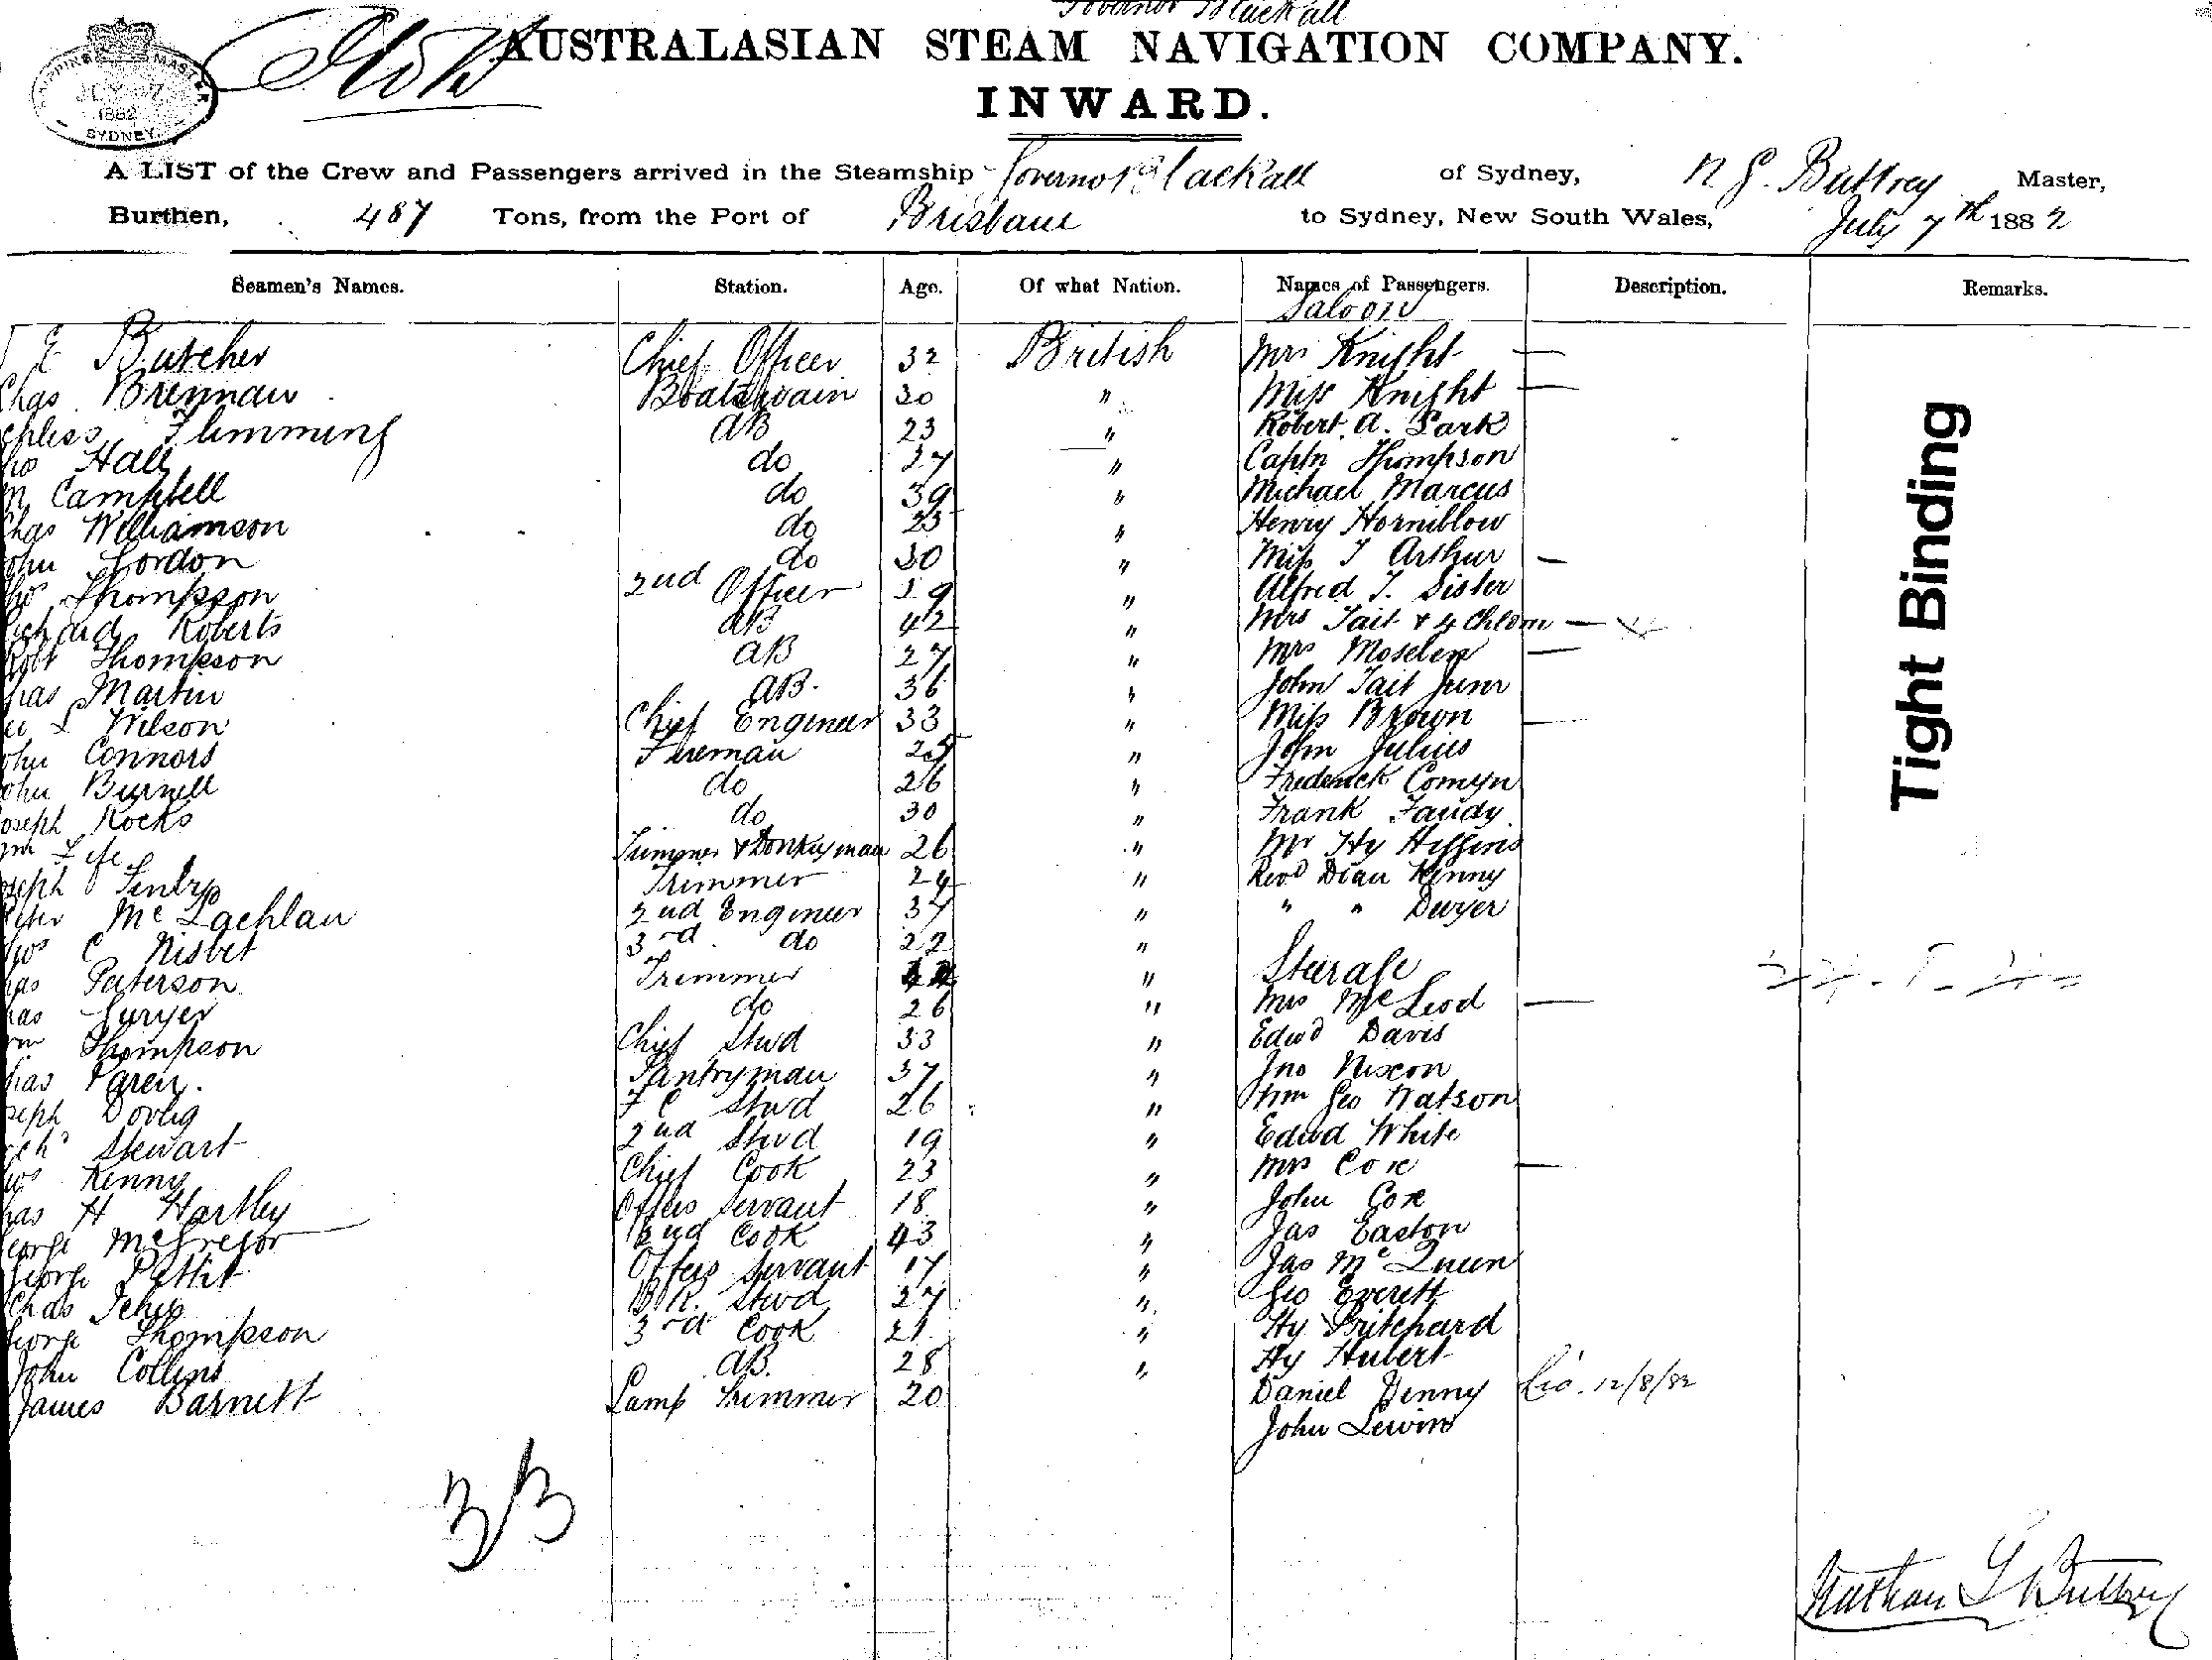 Governor Blackall
AUSTRALASIAN STEAM NAVIGATION COMPANY.
SHIPPING MASTER
JLY 7
1882
SYDNEY
INWARD.
A LIST of the Crew and Passengers arrived in the Steamship Governor Blackall of Sydney, N. G. Buttrey Master,
Burthen, 487 Tons, from the Port of Brisbane to Sydney, New South Wales, July 7th 1882
Seamen's Names. Station. Age. Of what Nation. Names of Passengers. Description. Remarks.
Saloon
E Butcher Chief Officer 32 British Mrs Knight —
Chas Brennan Boatswain 30 " Miss Knight —
Flemming AB 23 " Robert. A. Park
Hall do 27 " Captn Thompson
Campbell do 39 " Michael Marcus
Chas Williamson do 25 " Henry Horniblow
John Gordon do 30 " Miss J Arthur —
Thos Thompson 2nd Officer 29 " Alfred J. Sister
Richard Roberts AB 42 " Mrs Tait & 4 Chldrn —
Robt Thompson AB 27 " Mrs —
Chas Martin AB. 36 " John Tait Junr
Wilson Chief Engineer 33 " Miss Brown —
John Connors Fireman 25 " John Julius
John Burnell do 26 " Frederick Comyn
Joseph Rocks do 30 " Frank Fandy
Wm Fife Trimmer & Donkeyman 26 " Mr Hy Higgins
Joseph Trimmer 24 " Revd Dean Kenny
Peter McLachlan 2nd Engineer 37 " " " Dwyer
Thos C Nisbet 3rd do 22 "
Steerage
Paterson Trimmer "
do 26 " Mrs McLeod —
Wm Thompson Chief Stwd 33 " Edwd Davis
Chas Pantryman 37 " Jno Nixon
Joseph F C Stwd 26 " Wm Geo Watson
Stewart 2nd Stwd 19 " Edwd White
Thos Kenny Chief Cook 23 " Mrs Cox —
Chas H Hartley Offers Servant 18 " John Cox
George McGregor 2nd Cook 43 " Jas Easton
George Pettit Offers Servant 17 " Jas McQueen
Chas B.R. Stwd 27 " Geo Everett
George Thompson 3rd Cook 21 " Hy Pritchard
John Collins AB. 28 " Hy Hubert
James Barnett Lamp Trimmer 20 Daniel Denny Lic. 12/8/82
John Lewin
33
Tight Binding
Nathan G Buttrey